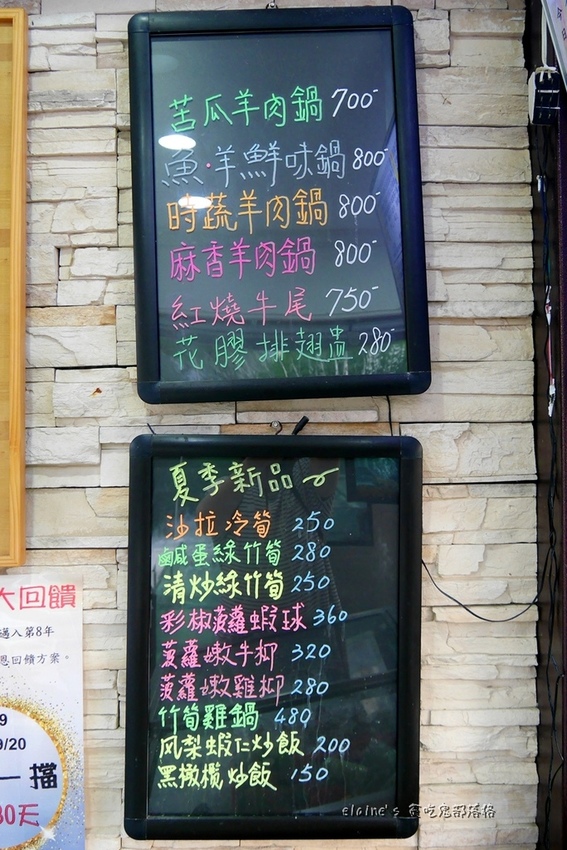 苦瓜羊肉鍋 700-
魚·羊鮮味鍋 800-
時蔬羊肉鍋 800-
麻香羊肉鍋 800-
紅燒牛尾 750-
花膠排翅盅 280-
夏季新品
沙拉冷筍 250
鹹蛋綠竹筍 280
清炒綠竹筍 250
彩椒菠蘿蝦球 360
菠蘿嫩牛柳 320
菠蘿嫩雞柳 280
竹筍雞鍋 480
凤梨蝦仁炒飯 200
黑橄欖炒飯 150
大回饋
邁入第8年
恩回饋方案。
9
9/20
一擋
30天
elaine's 貪吃鬼部落格